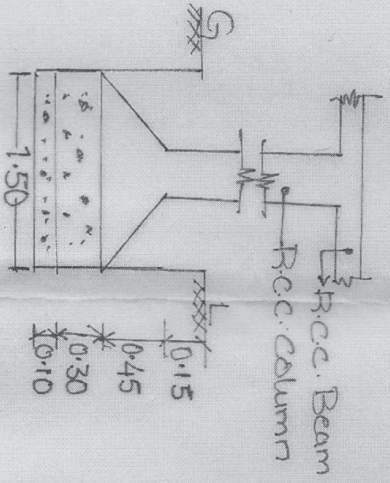 R.C.C. Beam
R.C.C. Column
G
L
0.15
0.45
0.30
0.10
1.50